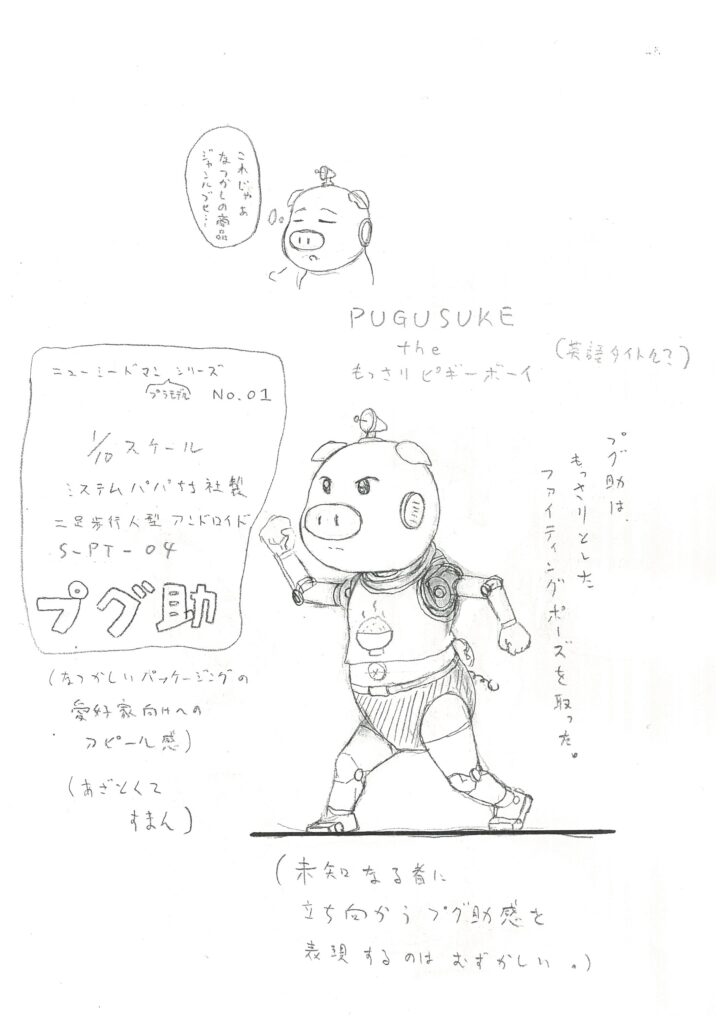 これじゃあ
なつかしの商品
ジャンルブセ…
PUGUSUKE
the
もっさりピギーボーイ
(英語タイトル?)
ニューミードマン シリーズ
プラモデル
No.01
1/10 スケール
システムパパ付社製
二足歩行人型アンドロイド
S-PT-04
プグ助
(なつかしいパッケージングの
愛好家向けへの
アピール感)
(あざとくて
すまん)
プグ助は、
もっさりとした
ファイティングポーズを取った。
(未知なる者に
立ち向かうプグ助感を
表現するのはむずかしい。)